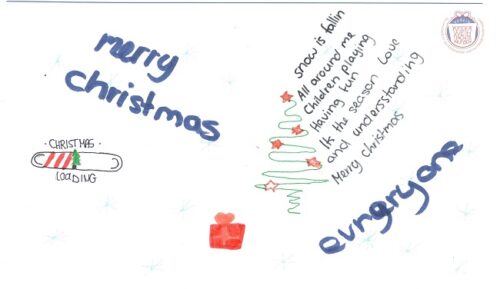 merry
christmas
snow is fallin
All around me
Children playing
Having fun
It's the season Love
and understanding
Merry christmas
CHRISTMAS
LOADING
evneryone